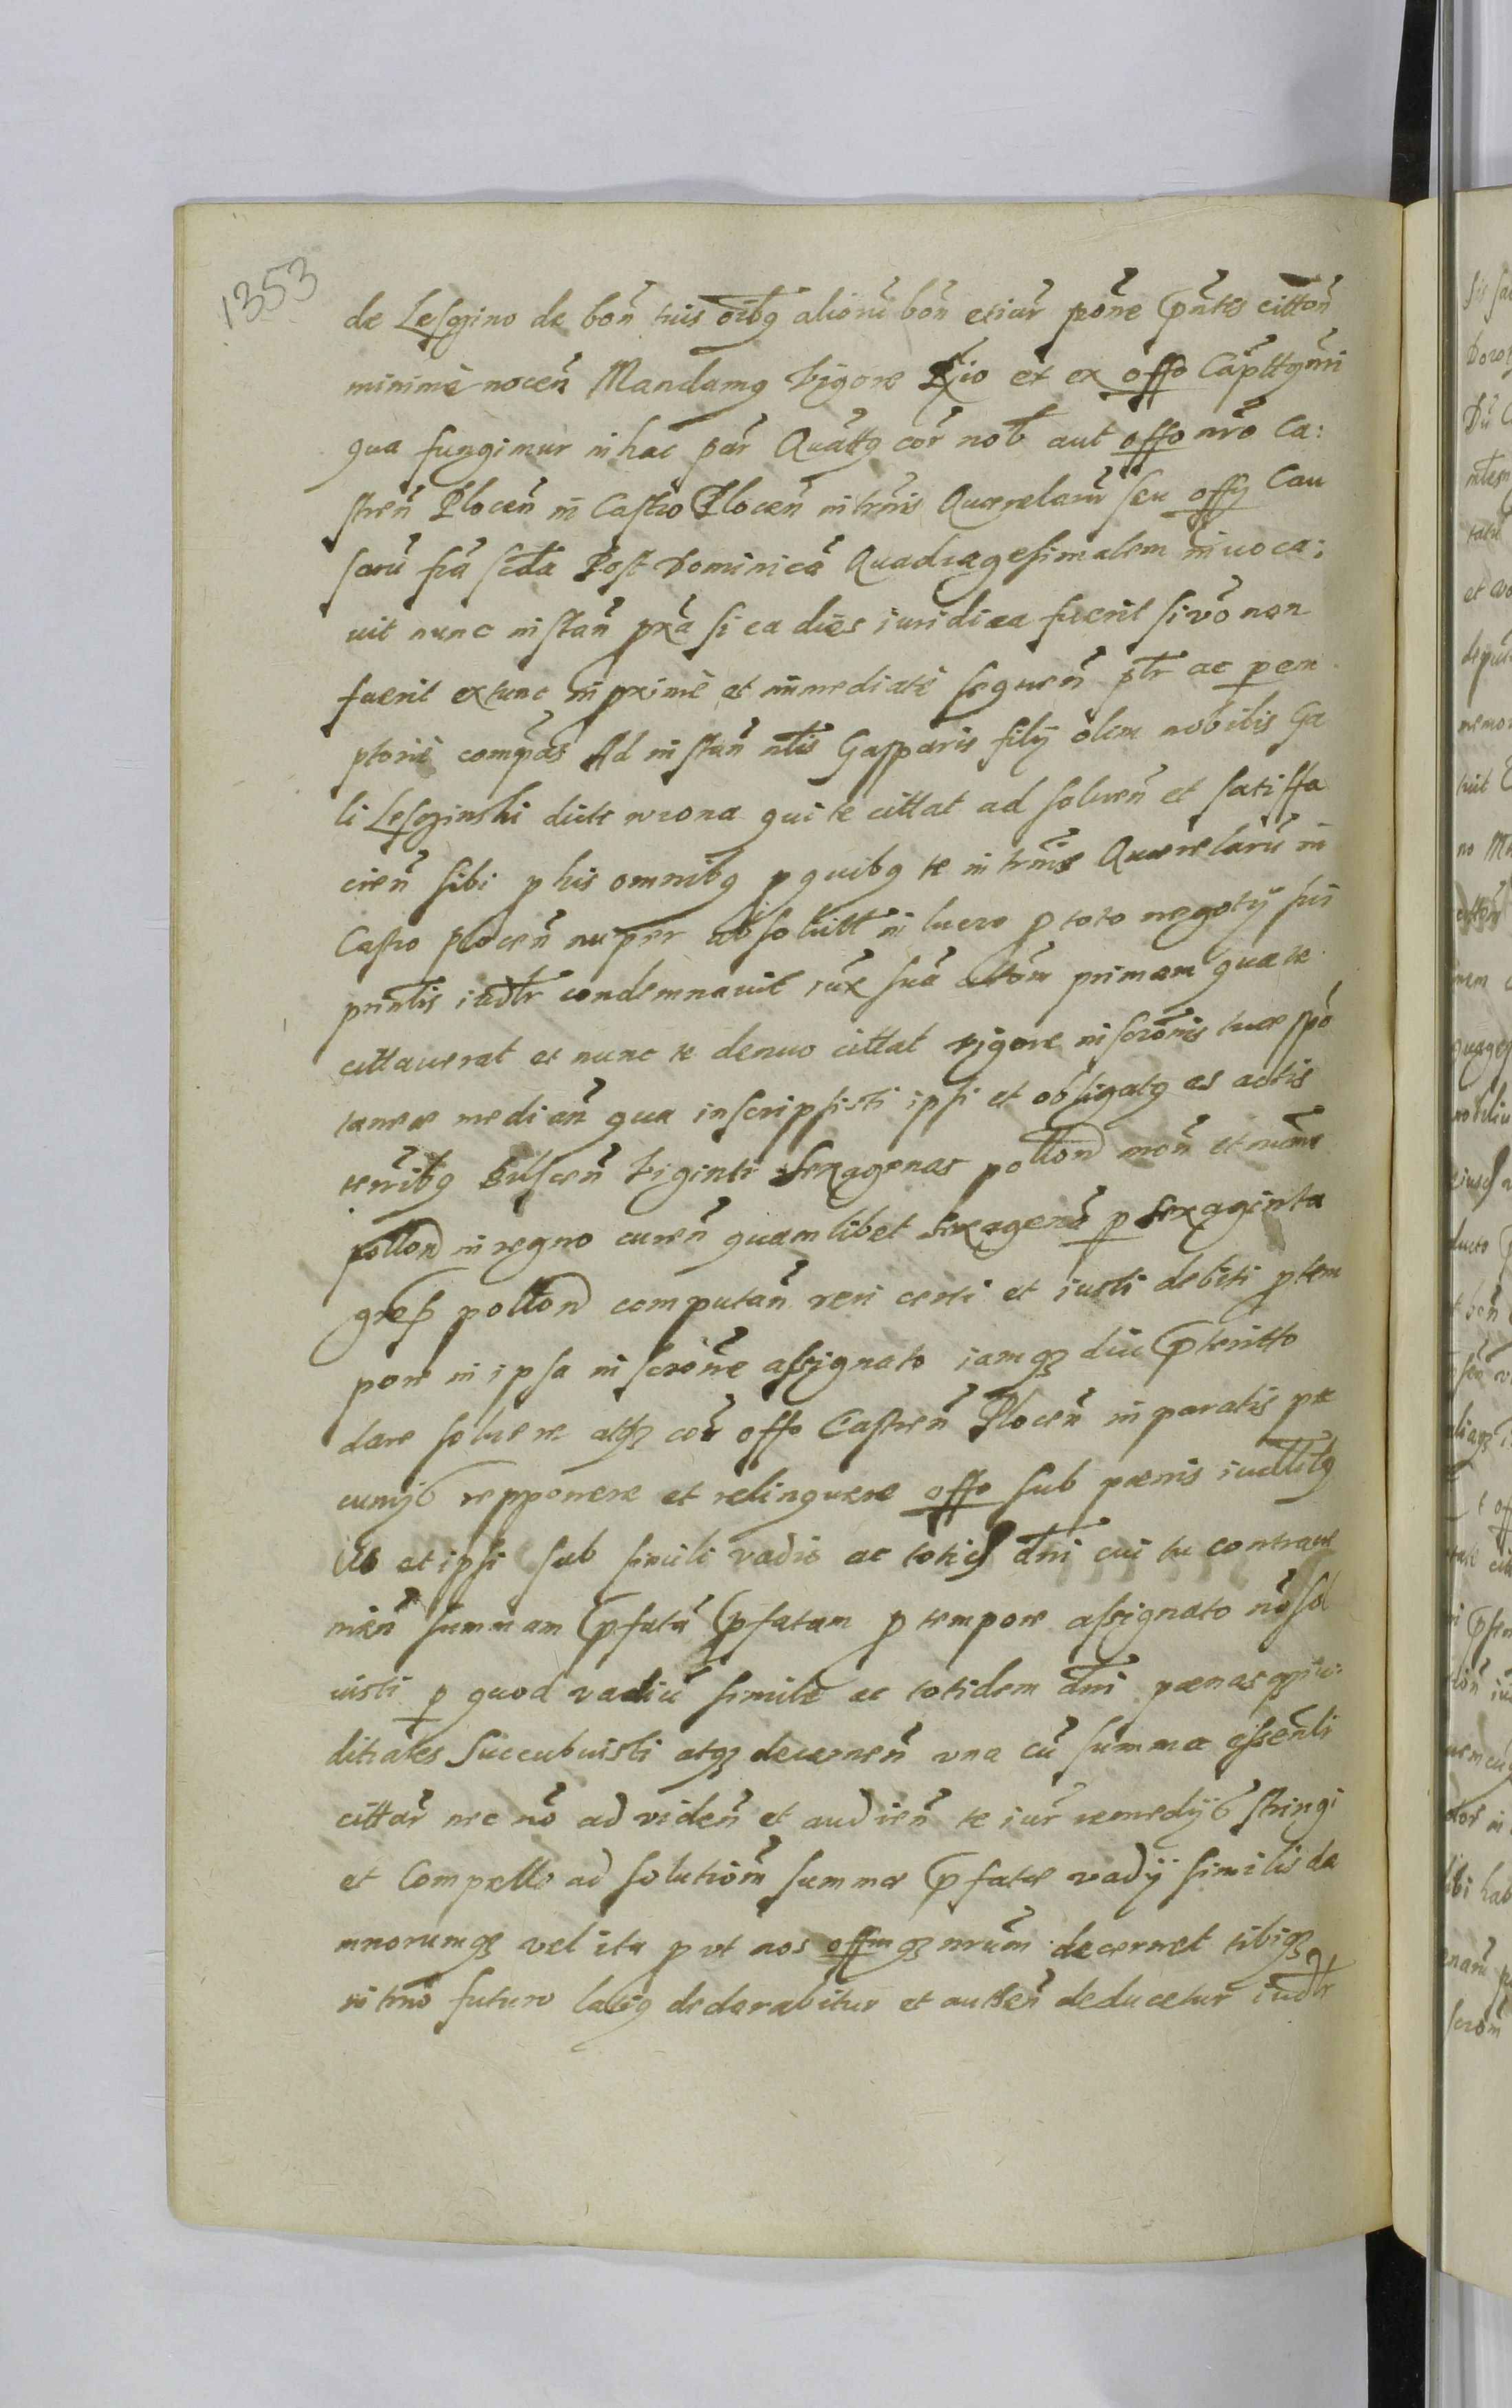 1353
de Lesgino de bon̄ tuis oībq alioru bon̄ etiar pōne p̄ntes citton̄
minime nocen̄ Mandamq vigore Rg̃io et ex offo Capttq̄ni
qua fungimur in hac par̃ Quattq cor̃ nob aut offo nr̄o Ca:
stren̄ Plocen̄ in Castro Plocen̄ in tr̄nis Querelarū seu offy Cau
sarū fr̄a sc̄da Post Dominicā Quadragesimalem inuoca:
uit nunc instan̄ pxa si ea dies iuridica fuerit si vō non
fuerit extunc in prime et immediate seguen̄ ptr ac peren
ptorie compas Ad instan̄ nl̄is Gasparis filij olim nobilis Ga
li Lesginski dicti wrona qui te cittat ad soluen̄ et satisffa
cien̄ sibi p his omnibq p quibq te in tr̄nis Querelarū in
Castro plocen̄ nuper absoluitt in lucro p toto negoty sui
printis iudtr condemnauit iux sua citom̄ primam qua te
cittauerat et nunc te denuo cittat vigore inscrōnis tuae spō
taneae median̄ qua inscripsisti ipsi et obligatq es actis
terribq Bulscen̄ viginti sexagenas pollon̄ mon̄ et num̄
pollon̄ in regno curen̄ quamlibet sexagenā p sexaginta
gross pollon̄ computan̄ veri certi et iusti debiti p tem
pore in ipsa inscrōne assignato iamqz diu p̄teritto
dare soluere atqz cor̃ offo Castren̄ Plocen̄ in paratis pe
cunijs repponere et relinquere offo sub pœnis iudltbq
Uo et ipsi sub simili vadio ac totid dn̄i cui tu contraue
nien̄ summam p̄fatā p̄fatam p tempore assignato nō sol
uisti p quod vadiū simile ac totidem dn̄i pœnasqz iu:
ditiales succubuisti atqz decernen̄ vna cū summa essen̄li
cittar̃ nec nō ad viden̄ et audien̄ te iur̃ remedijs stringi
et Compelle ad solutiom̄ summae p̄fatae vadij similis da
mnorumqz vel ita p vt nos offmqz nrūm decernet tibiqz
in tr̄no futuro latiq declarabitur et authen̄ deducetur iudtr